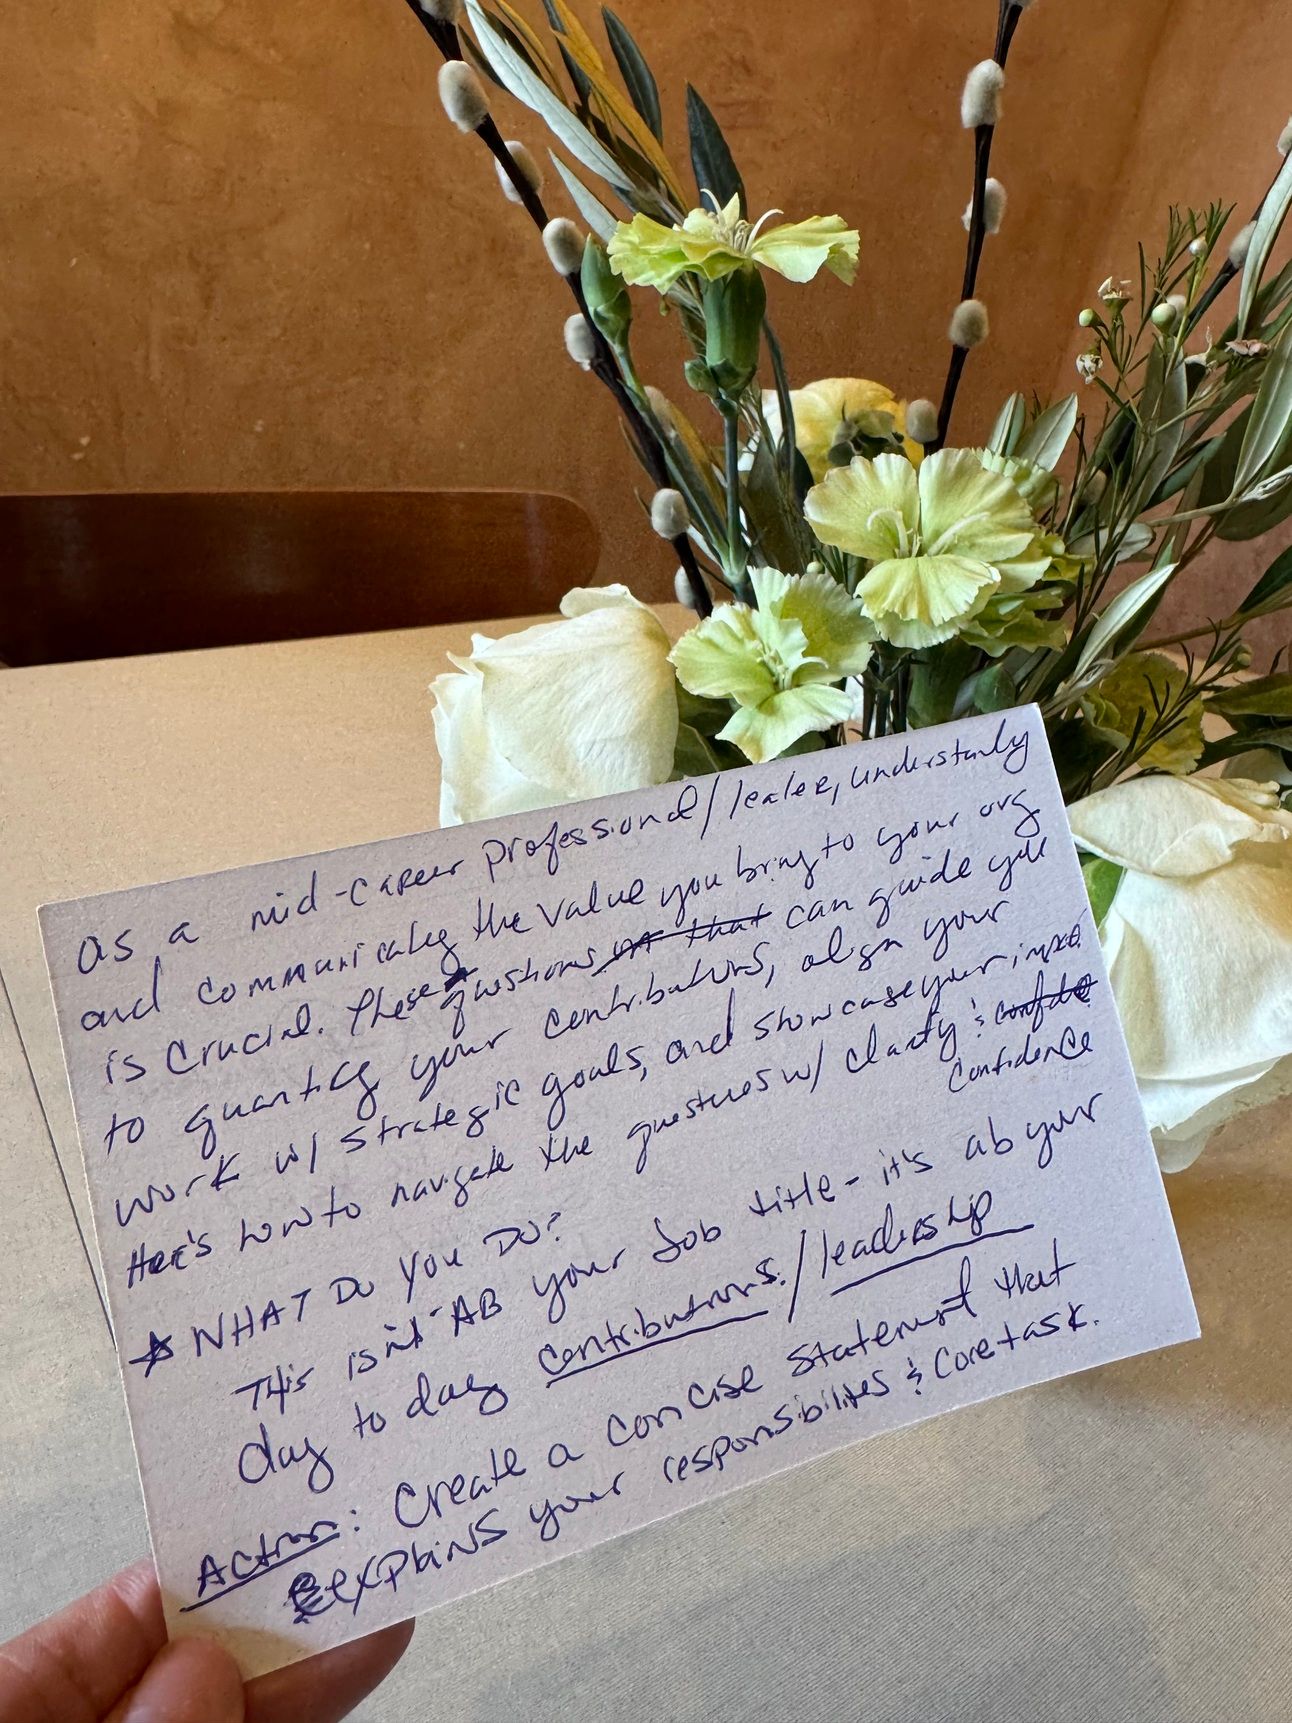 as a mid-career professional/leader, understandg
and communicatg the value you bring to your org
is crucial. These questions can guide you
to quantify your contributions, align your
work w/ strategic goals, and showcase your impact
Here's how to navigate the questions w/ clarity &
confidence
☆ WHAT DO YOU DO?
This isn't AB your Job title - it's ab your
day to day contributions./leadership
Action: Create a concise statement that
explains your responsibilites & core task.